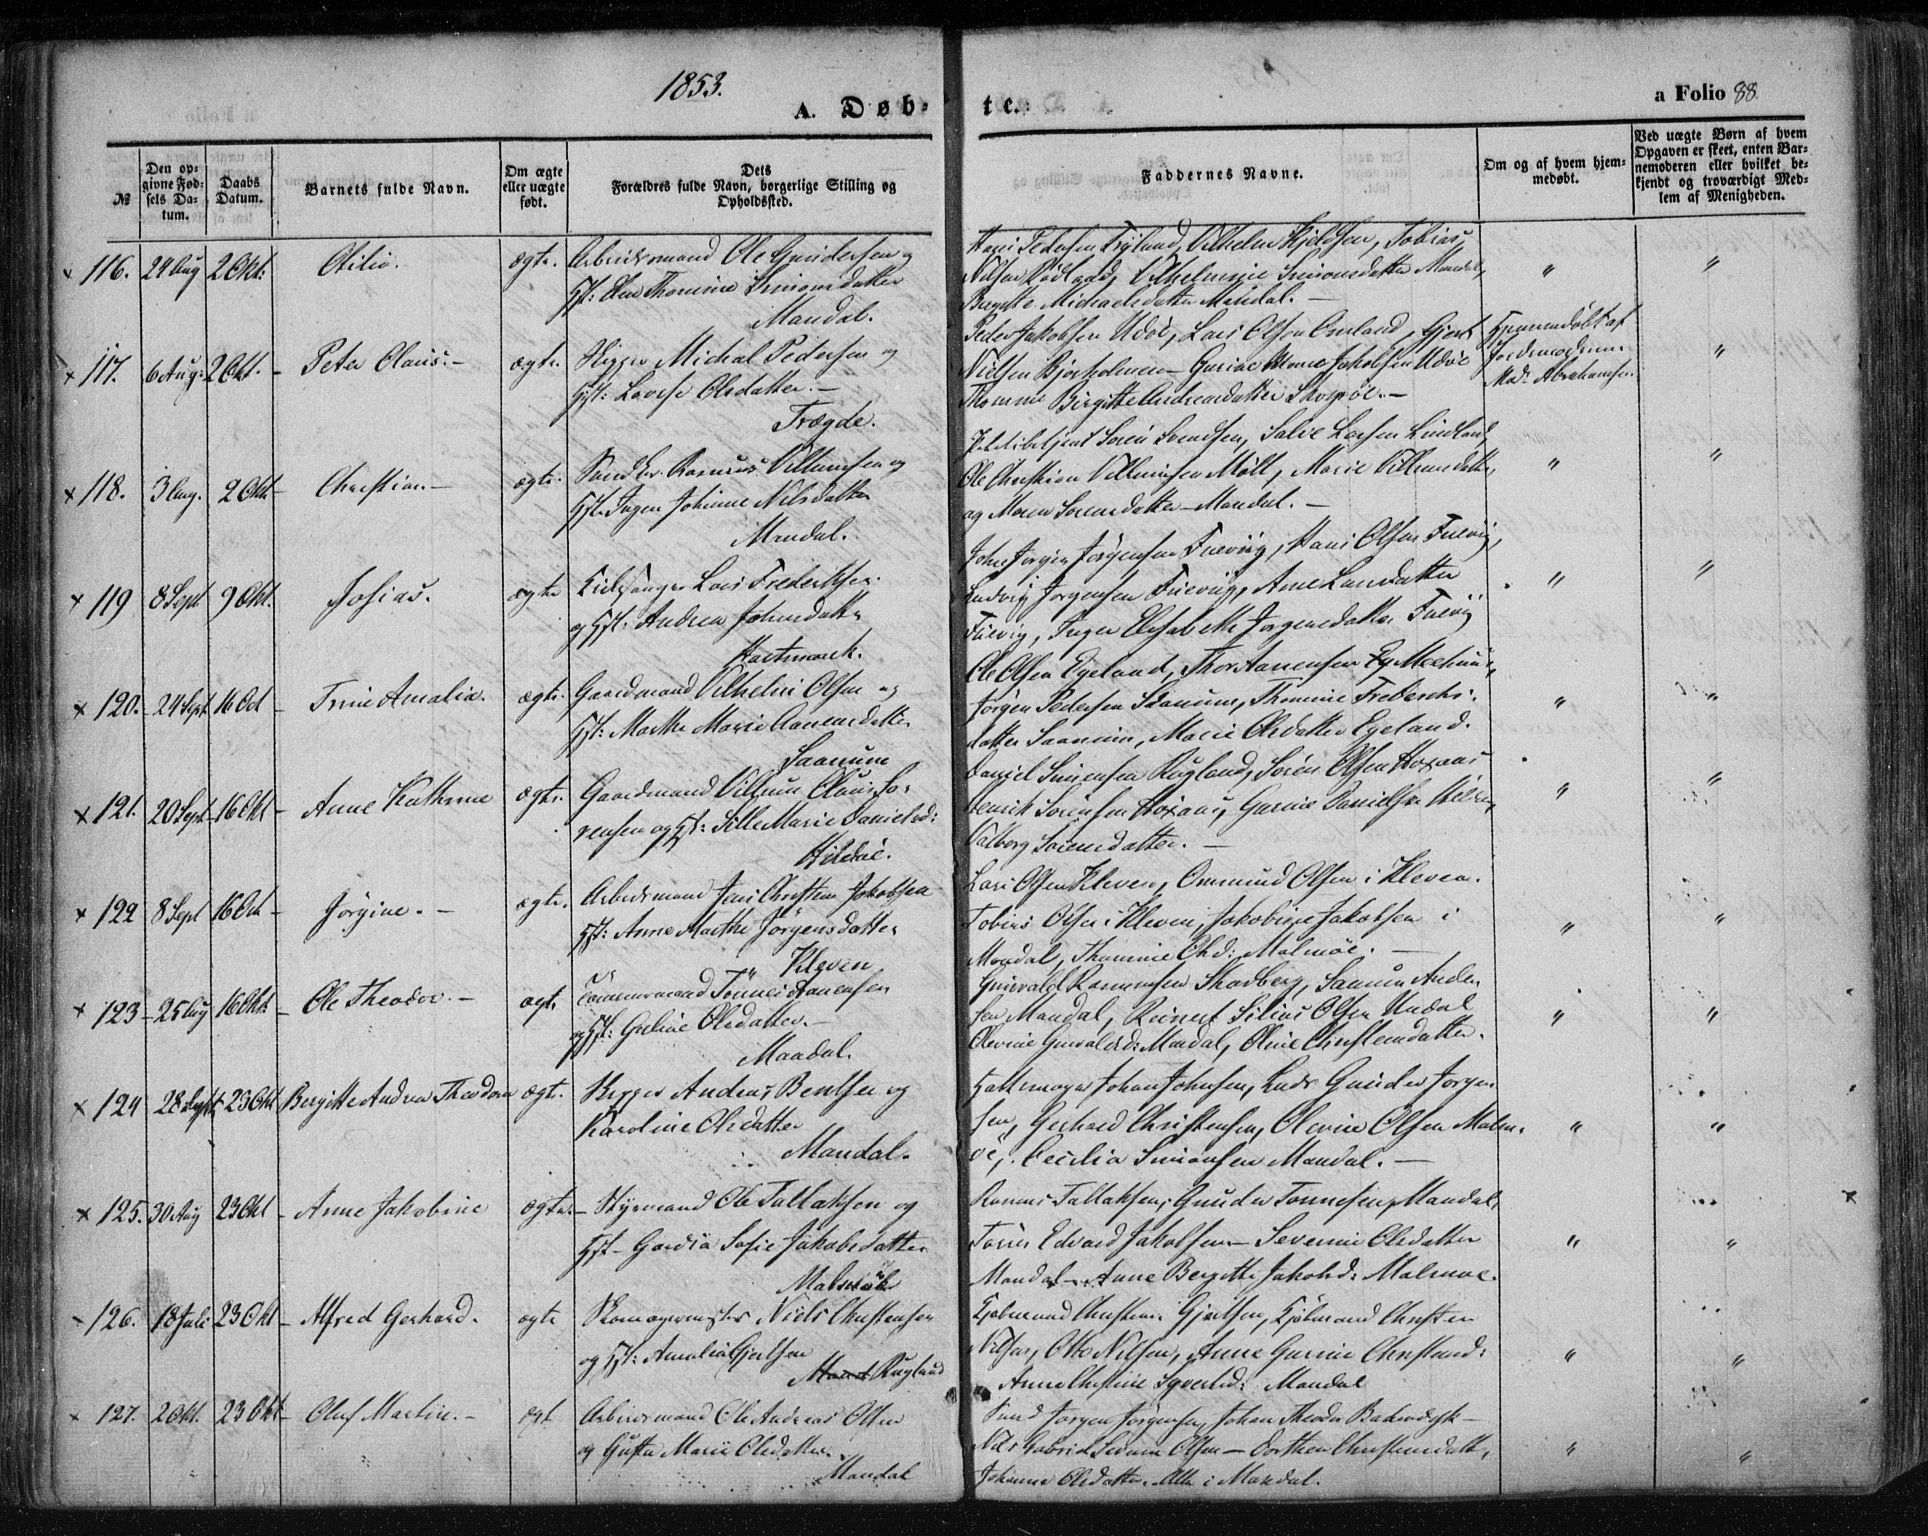 1853.
A. Døb-
te.
a Folio 88.
№
Den op-
givne Fød-
sels Da-
tum.
Daabs
Datum.
Barnets fulde Navn.
Om ægte
eller uægte
født.
Dets
Forældres fulde Navn, borgerlige Stilling og
Opholdssted.
Faddernes Navne.
Om og af hvem hjem-
medøbt.
Ved uægte Børn af hvem
Opgaven er skeet, enten Bar-
nemoderen eller hvilket be-
kjendt og troværdigt Med-
lem af Menigheden.
116. 24 Aug 2 Okt: Otilie. ægte. Arbeidsmand Ole Gundersen og
Hst: Thomine Simonsdatter
Mandal.
Hans Pedersen Vilhelm Kjeldsen, Tobias
Nilsen Vilhelmine Simonsdatter Mandal,
Birgitte Michaelsdatter Mandal. —
" "
117. 6 Aug: 2 Okt. – Peter Claus. – ægte. Skipper Michal Pedersen og
Hst: Lovise Olsdatter. —
Trægde.
Peder Jakobsen Udöe, Lars Olsen Omland, Gjert
Nielsen Bjorholmen – Gurine Marie Jakobsen Udöe
Thomine Birgitte Andreasdatter Skogöe. —
Hjemmedøbt af
Jordemoderen
Mad: Abrahamsen.
"
118. 3 Aug. 2 Okt – Christian. – ægte. Rasmus Villumsen og
Hst. Inger Johanne Nilsdatter
Mandal.
Sören Svendsen, Salve Larsen Lindland,
Ole Christian Villumsen Möll, Marie Villumsdatter,
og Maren Sörensdatter – Mandal. —
" "
119 8 Sept 9 Okt. Josias. ægte Lars Frederiksen.
og Hst: Andrea Johnsdatter
Hartmark.
John Jorgen Jörgensen Fuevig, Hans Olsen Fuevig,
Ludvig Jorgensen Fuevig, Ane Larsdatter
Fuevig, Inger Elisabeth Jorgensdatter Fuevig
" "
120. 24 Sept 16 Oct Trine Amalia. ægte. Gaardmand Vilhelm Olsen og
Hst: Marthe Marie Aanensdatter
Saanum
Ole Olsen Egeland, Thor Aanensen
Jørgen Pedersen Saanum, Thomine Frederiks-
datter Saanum, Marie Olsdatter Egeland.
" "
121. 20 Sept – 16 Okt – Anne Kathrine ægte. Gaardmand Villum Claus Sö-
rensen og Hst: Sille Marie Danielsd:
Hildöe.
Daniel Simensen Rugland, Sören Olsen Hoxaas
Henrik Sörensen Hoxaas, Gurine Danielsen
Valborg Sörensdatter. —
" "
122 8 Sept 16 Oct – Jörgine. – ægte. Arbeidsmand Jens Christian Jakobsen
Hst: Anne Marthe Jörgensdatter
Kleven
Lars Olsen Kleven, Ommund Olsen i Kleven.
Tobias Olsen i Kleven, Jakobine Jakobsen i
Mandal, Thomine Olsd: Malmöe. —
" "
123 – 25 Aug 16 Okt: Ole Theodor. – ægte Tömmermand Tönnes Aanensen
og Hst: Guline Olsdatter. —
Mandal.
Gunvald Rasmusen Skadberg, Saamun Ander-
sen Mandal, Reinert Silius Olsen Undal
Olevine Gunvaldsd: Mandal, Oline Christensdatter.
" "
124 28 Sept 23 Okt Bergitte Andrea Theodora ægte. Skipper Andreas Bentsen og
Karoline Olsdatter
Mandal.
Hattemager Johan Johnsen, Gunder Jorgen-
sen, Gerhard Christensen, Olevine Olsen Malm-
öe, Cecilia Simonsen Mandal. —
" "
125. 30 Aug 23 Okt – Anne Jakobine ægte. – Styrmand Ole Tallaksen og
Hst – Gurdia Sofie Jakobsdatter
Malmöe
Rasmus Tallaksen, Gunder Tönnesen, Mandal,
Edvard Jakobsen – Severine Olsdatter
Mandal – Anne Bergitte Jakobsd: Malmöe.
" "
126. 18 Juli 23 Okt – Alfred Gerhard. ægte Skomagermester Niels Christensen
og Hst: Amalia Gjertsen
Rugland
Kjöbmand Christian Gjertsen, Kjöbmand Christen
Nilsen, Otto Nilsen, Anne Gurine Christensd:
Anne Christine Syvertsd: Mandal
" "
127. 2 Okt. 23 Okt – Oluf Martin. – ægt Arbeidsmand Ole Andreas Olsen
og Gusta Marie Olsdatter.
Mandal
Jorgen Jörgensen, Johan Theodor
Nils Gabriel Olsen – Dorthea Christensdatt,
Johanne Olsdatter. Alle i Mandal.
" "